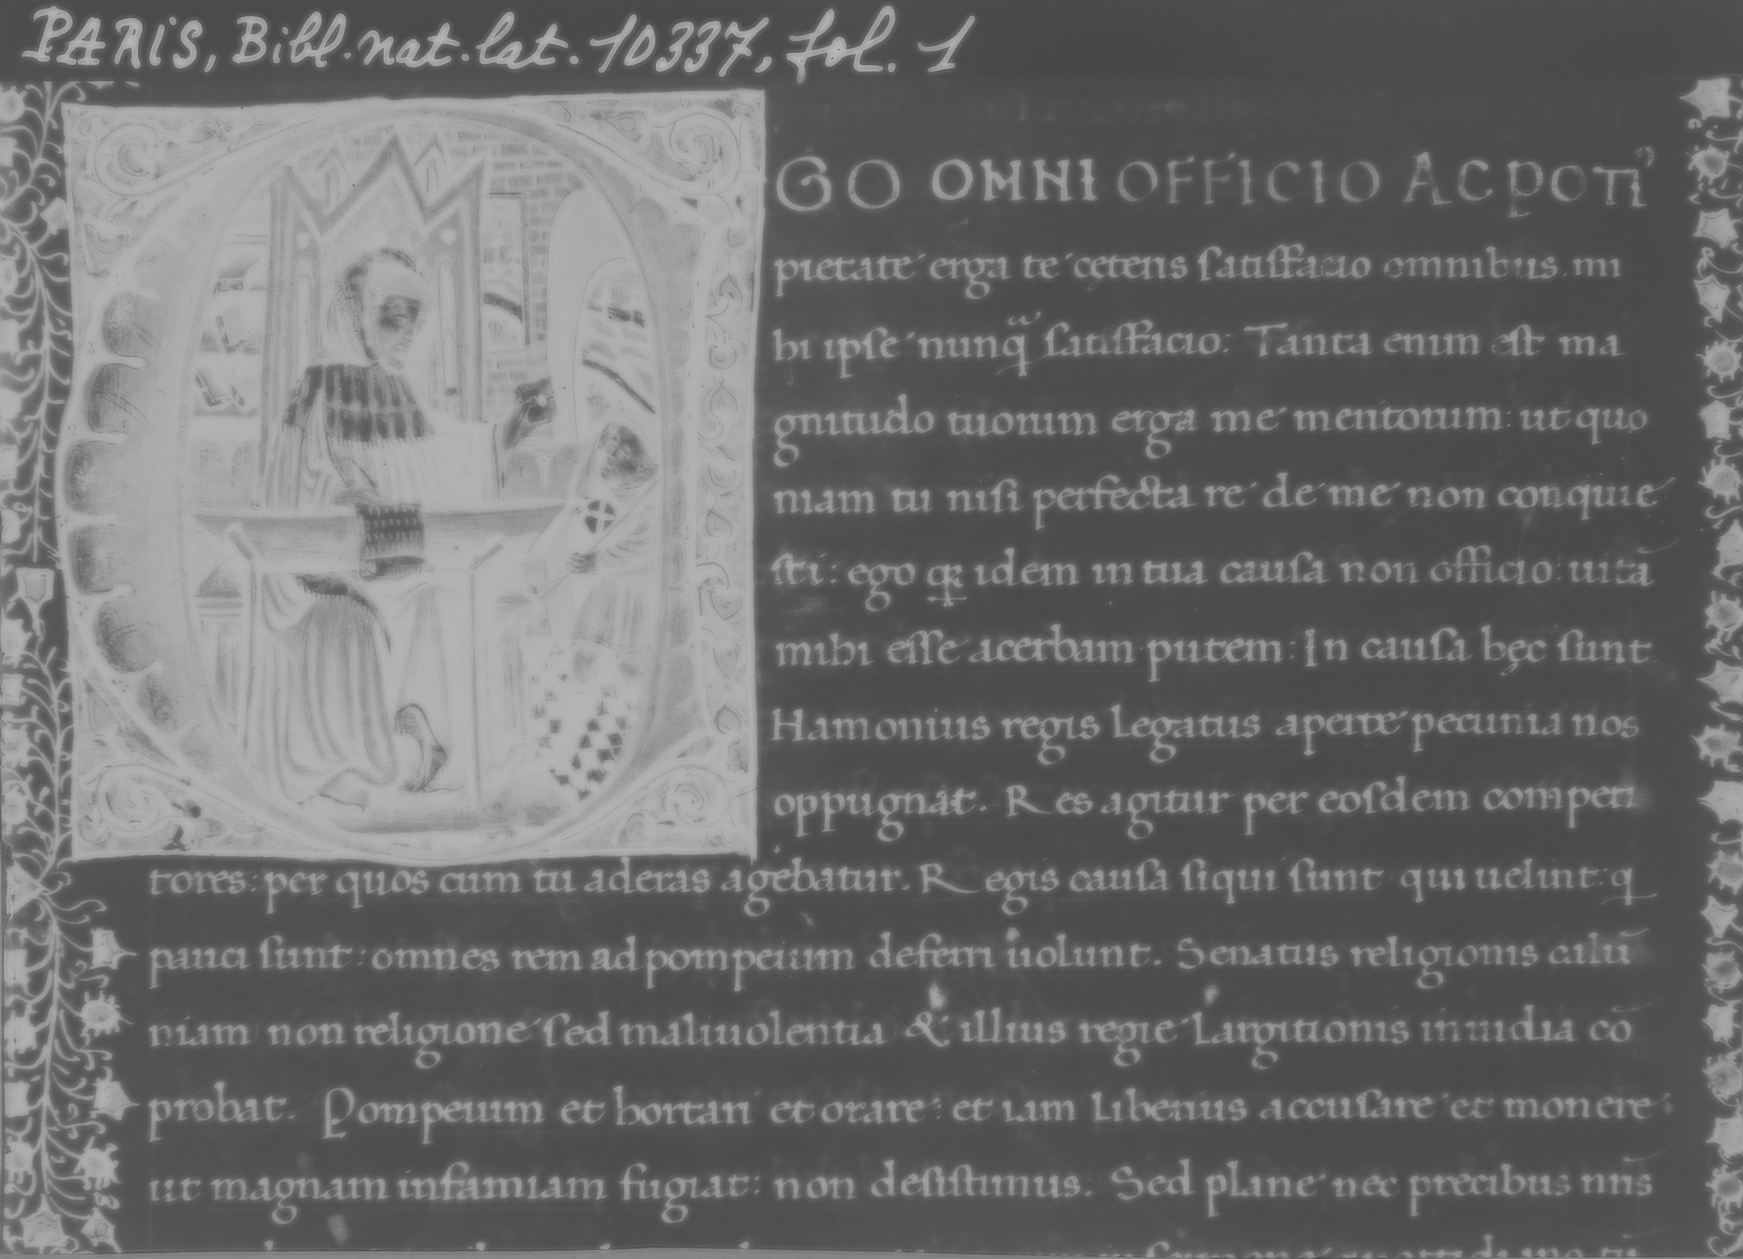 PARIS, Bibl. nat. lat. 10337, fol. 1
GO OMNI OFFICIO AC POTI᾽
pietate erga te cęteris satisfacio omnibus. mi
hi ipse nunq̃ satisfacio: Tanta enim est ma
gnitudo tuorum erga me meritorum: ut quo
niam tu nisi perfecta re de me non conquie
sti: ego qꝛ idem in tua causa non officio: uitā
mihi esse acerbam putem: In causa hęc sunt
Hamonius regis legatus aperte pecunia nos
oppugnat. Res agitur per eosdem competi
tores: per quos cum tu aderas agebatur. Regis causa siqui sunt qui uelint: q
pauci sunt: omnes rem ad pompeium deferri uolunt. Senatus religionis calū
niam non religione sed maliuolentia & illius regie largitionis inuidia cō
probat. Pompeium et hortari et orare: et iam liberius accusare et monere
ut magnam infamiam fugiat: non desistimus. Sed plane nec precibus nr̄is